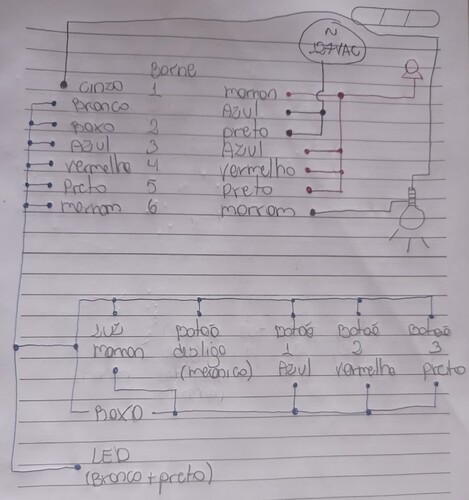 N
127VAC
Borne
Cinza 1
Branco
Roxo 2
Azul 3
Vermelho 4
Preto 5
marrom 6
marrom
Azul
preto
Azul
vermelho
preto
marrom
Luz Botão Botão Botão Botão
marrom desliga 1 2 3
(mecânico) Azul vermelho preto
Roxo
LED
(Branco + preto)